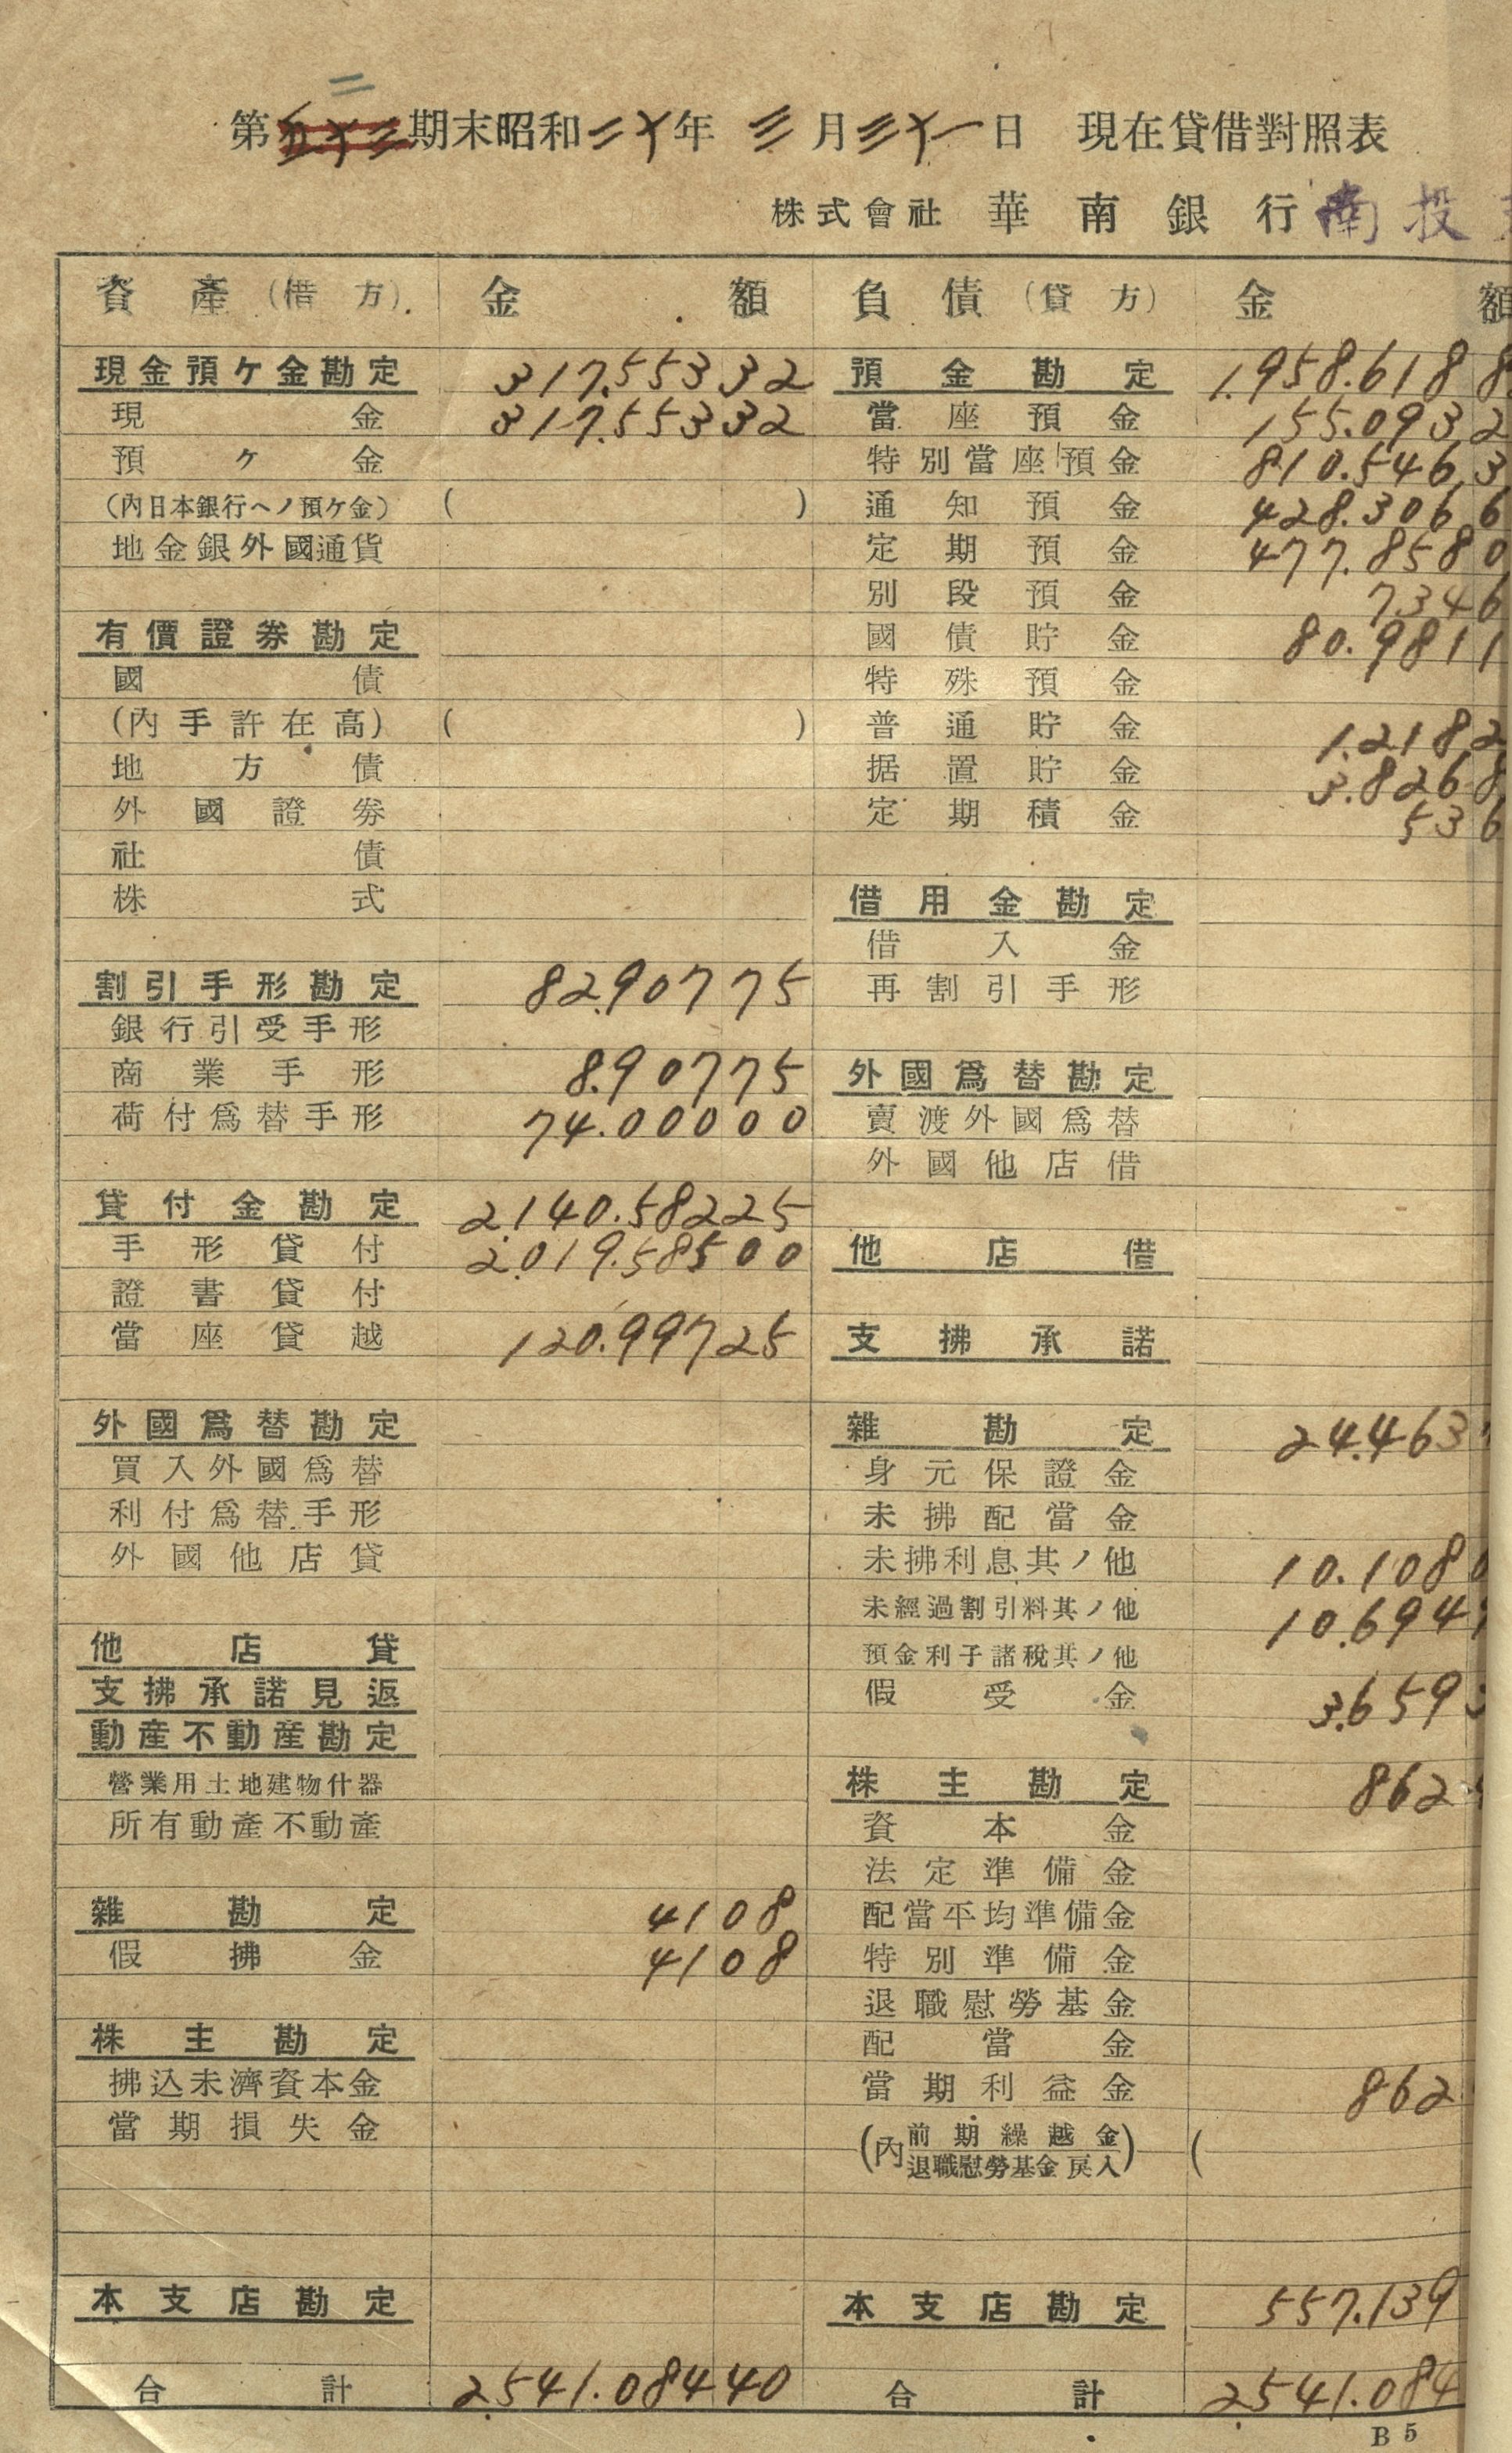 二
第五十三期末昭和二十年 三月三十一日 現在貸借對照表
株式會社 華南銀行 南投
資產(借方) 金額 負債(貸方) 金額
現金預ケ金勘定 317.553 32 預金勘定 1.958.618 8
現金 317.553 32 當座預金 155.093 2
預ケ金 特別當座預金 810.546 3
(內日本銀行ヘノ預ケ金) ( ) 通知預金 428.306 6
地金銀外國通貨 定期預金 477.858 0
別段預金 7346
有價證券勘定 國債貯金 80.981 1
國債 特殊預金
(內手許在高) ( ) 普通貯金 1.218 2
地方債 据置貯金 3.826 8
外國證券 定期積金 536
社債
株式 借用金勘定
借入金
割引手形勘定 82.907 75 再割引手形
銀行引受手形
商業手形 8.907 75 外國爲替勘定
荷付爲替手形 74.000 00 賣渡外國爲替
外國他店借
貸付金勘定 2.140.582 25
手形貸付 2.019.585 00 他店借
證書貸付
當座貸越 120.997 25 支拂承諾
外國爲替勘定 雜勘定 24.463
買入外國爲替 身元保證金
利付爲替手形 未拂配當金
外國他店貸 未拂利息其ノ他 10.108 0
未經過割引料其ノ他 10.694
他店貸 預金利子諸稅其ノ他
支拂承諾見返 假受金 3.659
動產不動產勘定
營業用土地建物什器 株主勘定 862
所有動產不動產 資本金
法定準備金
雜勘定 41 08 配當平均準備金
假拂金 41 08 特別準備金
退職慰勞基金
株主勘定 配當金
拂込未濟資本金 當期利益金 862
當期損失金 (內前期繰越金
退職慰勞基金戾入) (
本支店勘定 本支店勘定 557.139
合計 2.541.084 40 合計 2.541.084
B 5